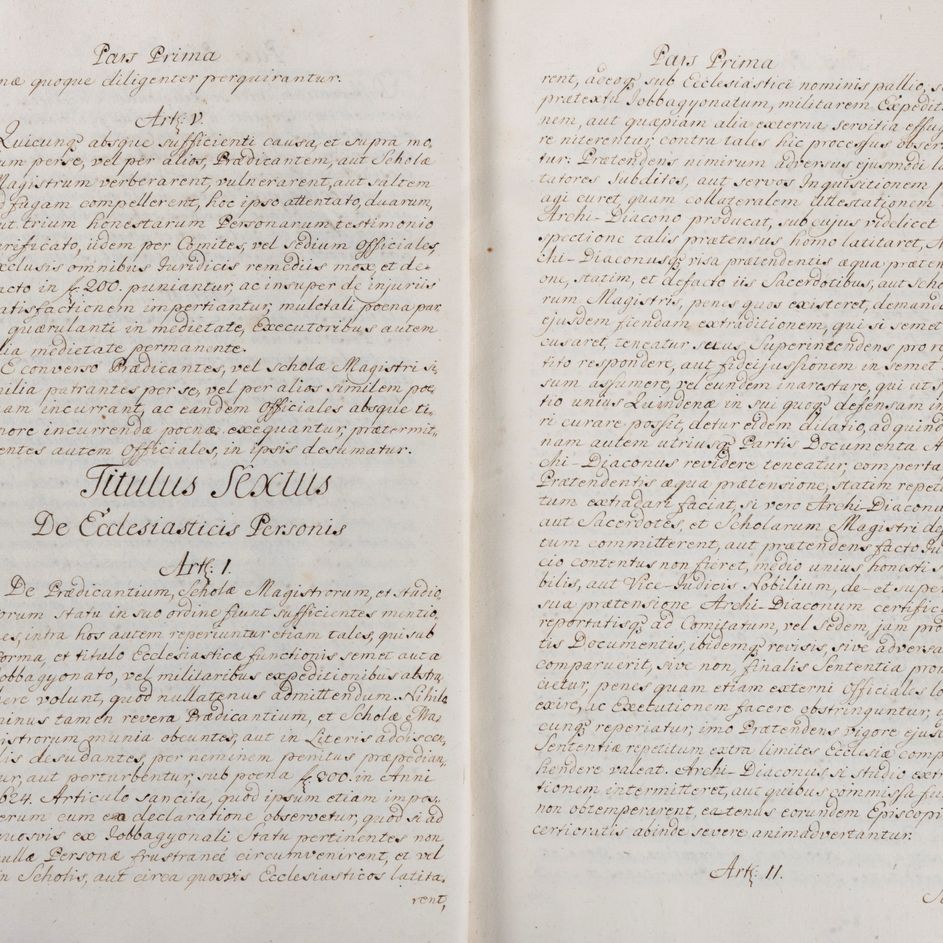 Pars Prima
næ quoque diligenter perquirantur.
Art: V.
Quicunq absque sufficienti causa, et supra mo,
um perse, vel per alios, Prædicantem, aut Scholæ
Magistrum verberarent, vulnerarent, aut saltem
d fugam compellerent, hoc ipso attentato, duarum,
ut trium honestarum Personarum testimonio
arificato, iidem per Comites, vel Sedium Officiales,
xclusis omnibus Juridicis remediis mox, et de-
acto in f. 200. puniantur, ac insuper de injuriis
atisfactionem impertiantur, mulctali pœna par
quærulanti in medietate, Executoribus autem
lia medietate permanente.
E converso Prædicantes, vel Scholæ Magistri si,
milia patrantes perse, vel per alios similem pœ,
nam incurrant, ac eandem Officiales absque ti,
more incurrendæ pœnæ exequantur, prætermit,
entes autem Officiales, in ipsis desumatur.
Titulus Sextus
De Ecclesiasticis Personis
Art: I.
De Prædicantium, Scholæ Magistrorum, et Studio,
orum statu in suo ordine fiunt sufficientes mentio,
es, intra hos autem reperiuntur etiam tales, qui sub
forma, et titulo Ecclesiasticæ functionis semet aut a
Jobbagyonato, vel militaribus expeditionibus abstra,
here volunt, quod nullatenus admittendum. Nihilo
minus tamen revera Prædicantium, et Scholæ Ma,
gistrorum munia obeuntes, aut in Literis addiscen,
dis desudantes, per neminem penitus præpedian,
tur, aut perturbentur, sub pœna f. 200. in Anni
1624. Articulo sancita, quod ipsum etiam in pos,
terum cum ea declaratione observetur, quod si ad
quosvis ex Jobbagyonali Statu pertinentes non
nullæ Personæ frustrancè circumvenirent, et vel
in Scholis, aut circa quosvis Ecclesiasticos latita,
rent,
Pars Prima
rent, adeoq sub Ecclesiastici nominis pallio, s
prætextu Jobbagyonatum, militarem Expediti
nem, aut quæpiam alia externa servitia effu
re niterentur, contra tales hic processus observ
tur: Prætendens nimirum adversus ejusmodi la
tatores Subditos, aut servos Inquisitionem p
agi curet, quam collateralem Attestationem
Archi-Diacono producat, sub cujus videlicet
spectione talis prætensus homo latitaret, A
chi-Diaconusq visa prætendentis æqua præten
one, statim, et defacto iis Sacerdotibus, aut Schol
rum Magistris, penes quos existeret, demand
ejusdem fiendam extraditionem, qui si semet
cusaret, teneatur suus, Superintendens pro re
tito respondere, aut fideijussionem in semet
sum assumere, vel eundem inarestare, qui ut s
tio unius Quindenæ in sui queq defensam in
ri curare possit, detur eidem dilatio, ad quind
nam autem utriusq Partis Documenta A
chi-Diaconus revidere teneatur, comperta
Prætendentis æqua prætensione, statim repeti
tum extradari faciat, si vero Archi-Diacon
aut Sacerdotes, et Scholarum Magistri de
tum committerent, aut prætendens facto Ju
cio contentus non fieret, medio unius honesti
bilis, aut Vice-Judicis Nobilium, de-et super
sua prætensione Archi-Diaconum certific
reportatisq ad Comitatum, vel Sedem, jam pro
tis Documentis, ibidemq revisis, sive adversa
comparuerit, sive non, finalis Sententia pron
cietur, penes quam etiam externi Officiales lo
exire, ac Executionem facere obstringuntur,
cunq reperiatur, imo Prætendens vigore ejus
Sententiæ repetitum extra limites Ecclesiæ comp
hendere valeat. Archi-Diaconus si studio extr
tionem intermitteret, aut quibus commissa fu
non obtemperarent, eatenus eorundem Episcopi
certioratis abinde severe animadvertantur.
Art: II.